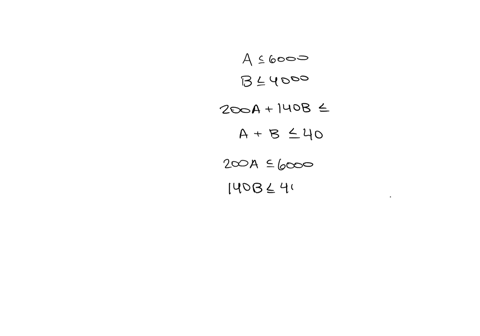 A ≤ 6000
B ≤ 4000
200A + 140B ≤
A + B ≤ 40
200A ≤ 6000
140B ≤ 41